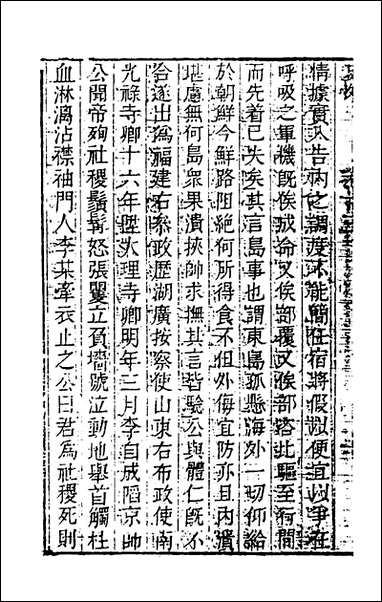 情據實入告內之調度不能簡任宿將假以便宜以爭在
呼吸之軍機旣俟成命又俟部覆又俟部咨此驅至行間
而先着已失矣其言島事也謂東島孤懸海外一切仰給
於朝鮮今鮮路阻絕何所得食不但外傷宜防亦且內潰
堪慮無何島衆果潰挾帥求撫其言皆驗公與體仁旣不
合遂出爲福建右叅政歷湖廣按察使山東右布政使南
光祿寺卿十六年陞大理寺卿明年三月李自成陷京師
公聞帝殉社稷鬚髯怒張踴立負牆號泣動地舉首觸柱
血淋漓沾襟袖門人李某牽衣止之公曰君爲社稷死則